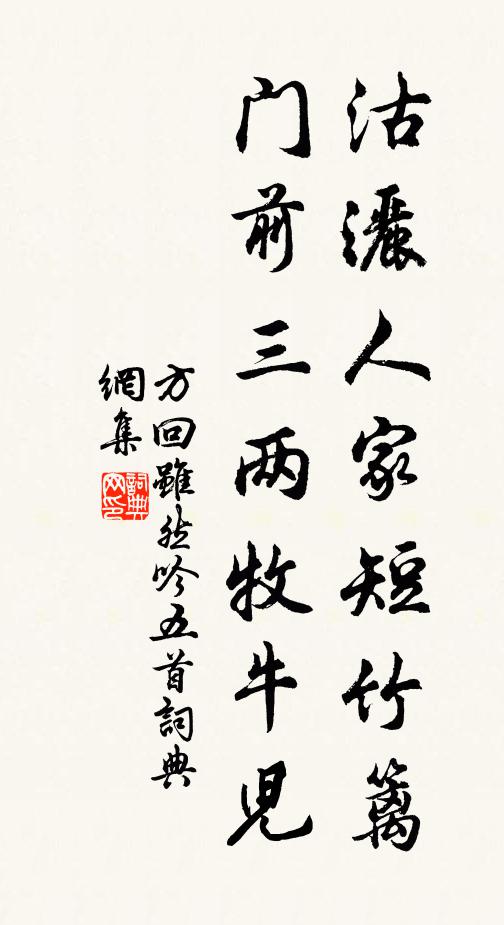 沽灑人家短竹篱
门前三两牧牛児
方回雖然吟五首詞典
網集
詞典网印